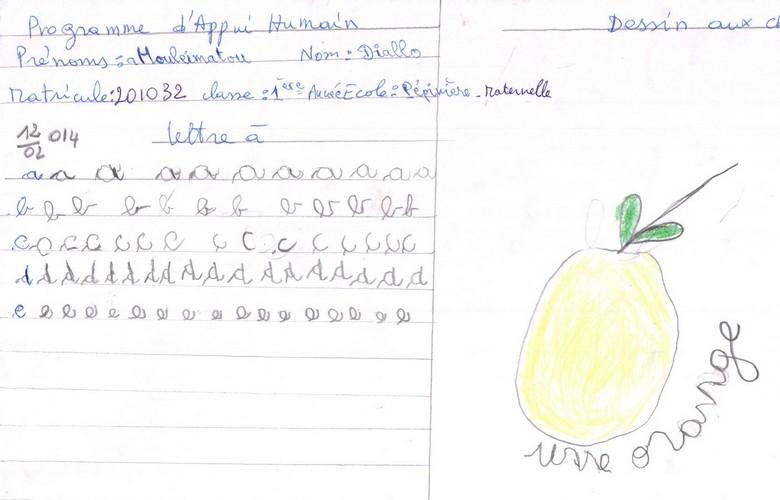 Programme d'Appui Humain
Prénoms : aMouleimatou Nom : Diallo
Matricule : 201032 classe : 1ère Année Ecole : Pépinière - Maternelle
12/02 014 lettre à
a a a a a a a a a a a a
b b b b b b b b b b b b
c c c c c c c c c c c c c c c
d d d d d d d d d d d d d d d d d d
e e e e e e e e e e e e e e e e e
Dessin aux c
usse orange